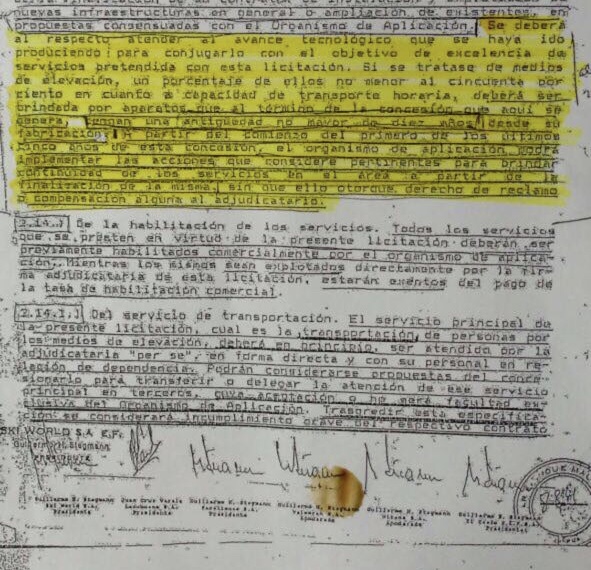 nuevas infraestructuras en general o ampliación de existentes, en
propuestas consensuadas con el Organismo de Aplicación. Se deberá
al respecto atender el avance tecnológico que se haya ido
produciendo para conjugarlo con el objetivo de excelencia de
servicios pretendida con esta licitación. Si se tratase de medios
de elevación, un porcentaje de ellos no menor al cincuenta por
ciento en cuanto a capacidad de transporte horaria, deberá ser
brindada por aparatos que al término de la concesión que aquí se
genera, tengan una antigüedad no mayor de diez años desde su
fabricación. A partir del comienzo del primero de los últimos
cinco años de esta concesión, el organismo de aplicación podrá
implementar las acciones que considere pertinentes para brindar
continuidad de los servicios en el área a partir de la
finalización de la misma, sin que ello otorgue derecho de reclamo
o compensación alguna al adjudicatario.
2.14.) De la habilitación de los servicios. Todos los servicios
que se presten en virtud de la presente licitación deberán ser
previamente habilitados comercialmente por el organismo de aplica-
ción. Mientras los mismos sean explotados directamente por la fir-
ma adjudicataria de esta licitación, estarán exentos del pago de
la tasa de habilitación comercial.
2.14.1.) Del servicio de transportación. El servicio principal de
la presente licitación, cual es la transportación de personas por
los medios de elevación, deberá en principio, ser atendido por la
adjudicataria "per se", en forma directa y con su personal en re-
lación de dependencia. Podrán considerarse propuestas del conce-
sionario para transferir o delegar la atención de ese servicio
principal en terceros, cuya aceptación o no será facultad ex-
clusiva del Organismo de Aplicación. Trasgredir esta especifica-
ción se considerará incumplimiento grave del respectivo contrato
SKI WORLD S.A. E.F.
Guillermo H. Stegmann
PRESIDENTE
Guillermo H. Stegmann Juan Cruz Varela Guillermo H. Stegmann Guillermo H. Stegmann Guillermo H. Stegmann Guillermo H. Stegmann
Ski World S.A.
Presidente Presidente Presidente Apoderado Apoderado Presidente